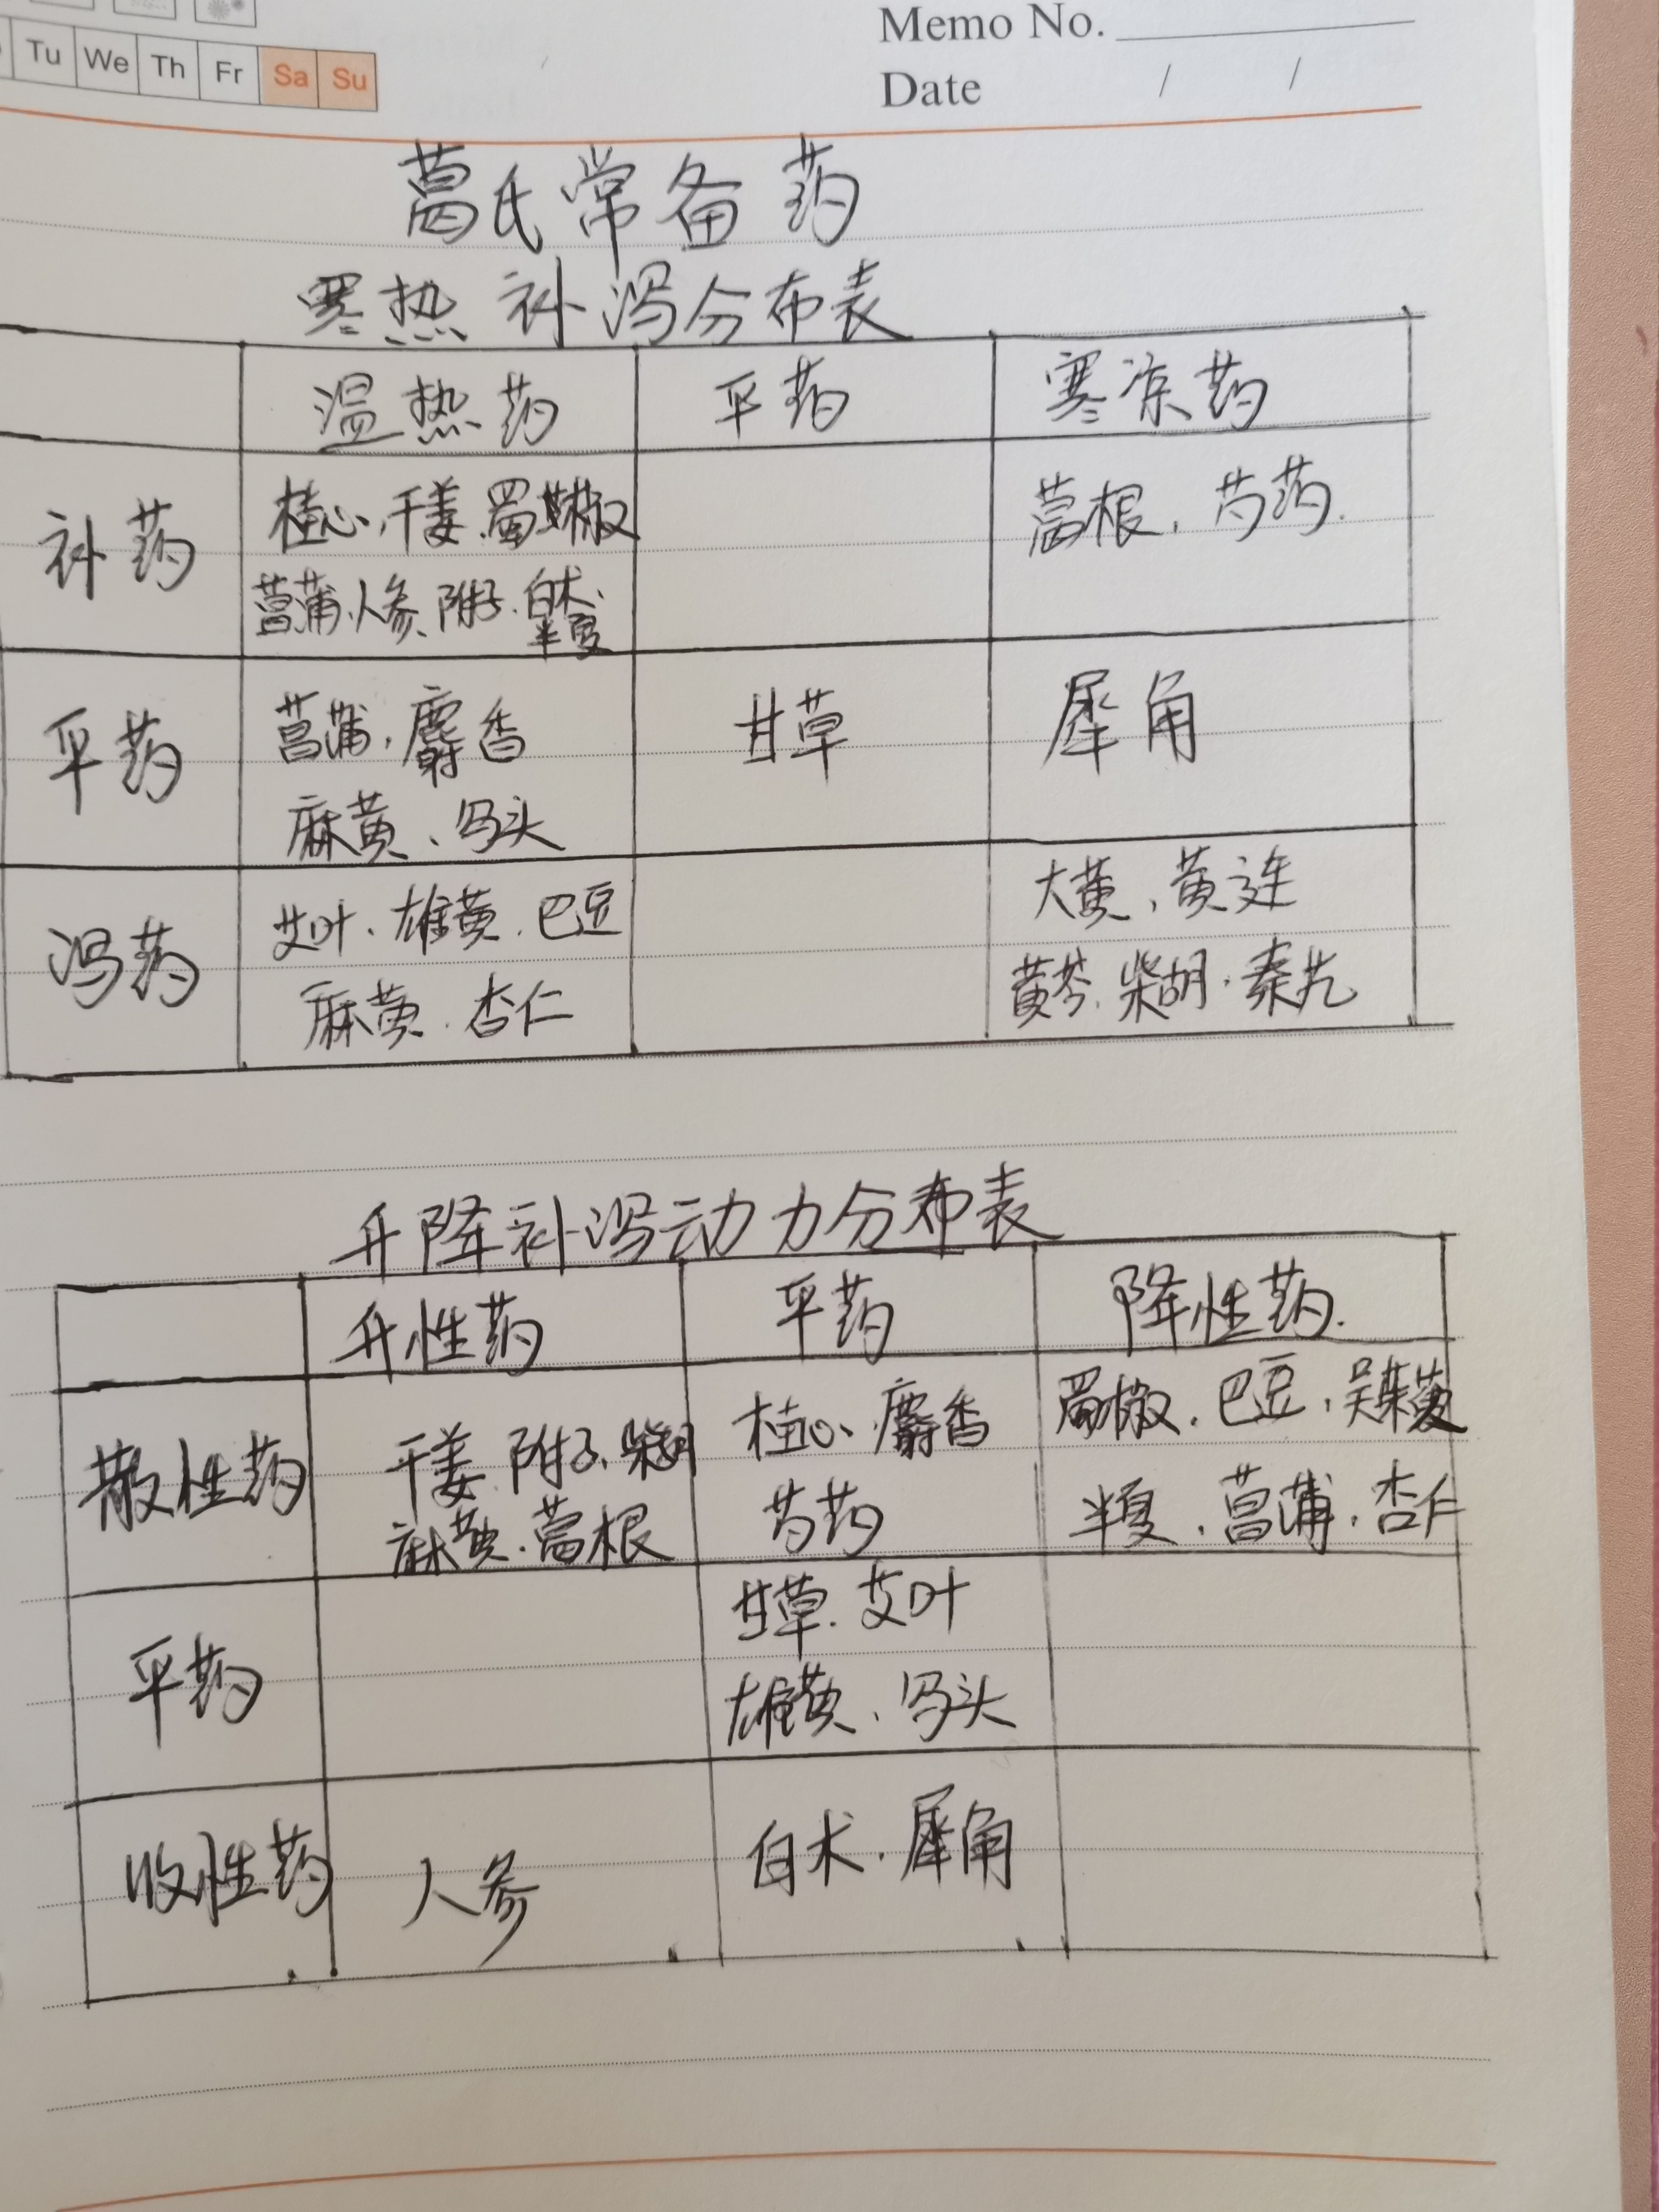 Memo No.
Tu We Th Fr Sa Su
Date / /
葛氏常备药
寒热补泻分布表
温热药 平药 寒凉药
补药 桂心、干姜、蜀椒 葛根、芍药.
菖蒲、人参、附子、白术、
半夏
平药 菖蒲、麝香 甘草 犀角
麻黄、乌头
泻药 艾叶、雄黄、巴豆 大黄、黄连
麻黄、杏仁 黄芩、柴胡、秦艽
升降补泻动力分布表
升性药 平药 降性药.
散性药 干姜、附子、柴胡 桂心、麝香 蜀椒、巴豆、吴茱萸
麻黄、葛根 芍药 半夏、菖蒲、杏仁
平药 甘草、艾叶
雄黄、乌头
收性药 人参 白术、犀角